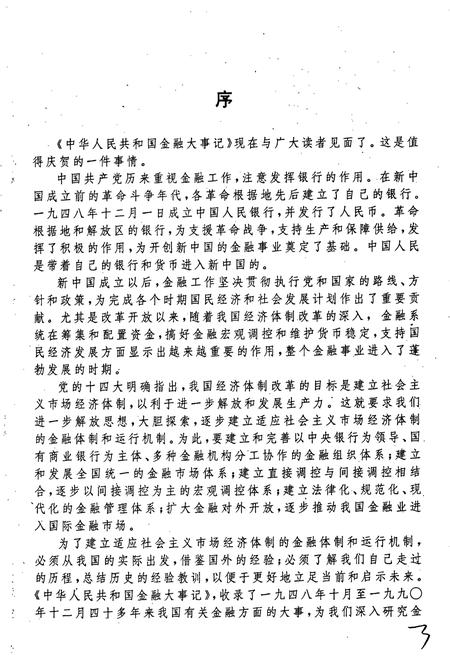 序
《中华人民共和国金融大事记》现在与广大读者见面了。这是值
得庆贺的一件事情。
中国共产党历来重视金融工作，注意发挥银行的作用。在新中
国成立前的革命斗争年代，各革命根据地先后建立了自己的银行。
一九四八年十二月一日成立中国人民银行，并发行了人民币。革命
根据地和解放区的银行，为支援革命战争，支持生产和保障供给，发
挥了积极的作用，为开创新中国的金融事业奠定了基础。中国人民
是带着自己的银行和货币进入新中国的。
新中国成立以后，金融工作坚决贯彻执行党和国家的路线、方
针和政策，为完成各个时期国民经济和社会发展计划作出了重要贡
献。尤其是改革开放以来，随着我国经济体制改革的深入，金融系
统在筹集和配置资金，搞好金融宏观调控和维护货币稳定，支持国
民经济发展方面显示出越来越重要的作用，整个金融事业进入了蓬
勃发展的时期。
党的十四大明确指出，我国经济体制改革的目标是建立社会主
义市场经济体制，以利于进一步解放和发展生产力。这就要求我们
进一步解放思想，大胆探索，逐步建立适应社会主义市场经济体制
的金融体制和运行机制。为此，要建立和完善以中央银行为领导、国
有商业银行为主体、多种金融机构分工协作的金融组织体系；建立
和发展全国统一的金融市场体系；建立直接调控与间接调控相结
合，逐步以间接调控为主的宏观调控体系；建立法律化、规范化、现
代化的金融管理体系；扩大金融对外开放，逐步推动我国金融业进
入国际金融市场。
为了建立适应社会主义市场经济体制的金融体制和运行机制，
必须从我国的实际出发，借鉴国外的经验；必须了解我们自己走过
的历程，总结历史的经验教训，以便于更好地立足当前和启示未来。
《中华人民共和国金融大事记》，收录了一九四八年十月至一九九〇
年十二月四十多年来我国有关金融方面的大事，为我们深入研究金
3